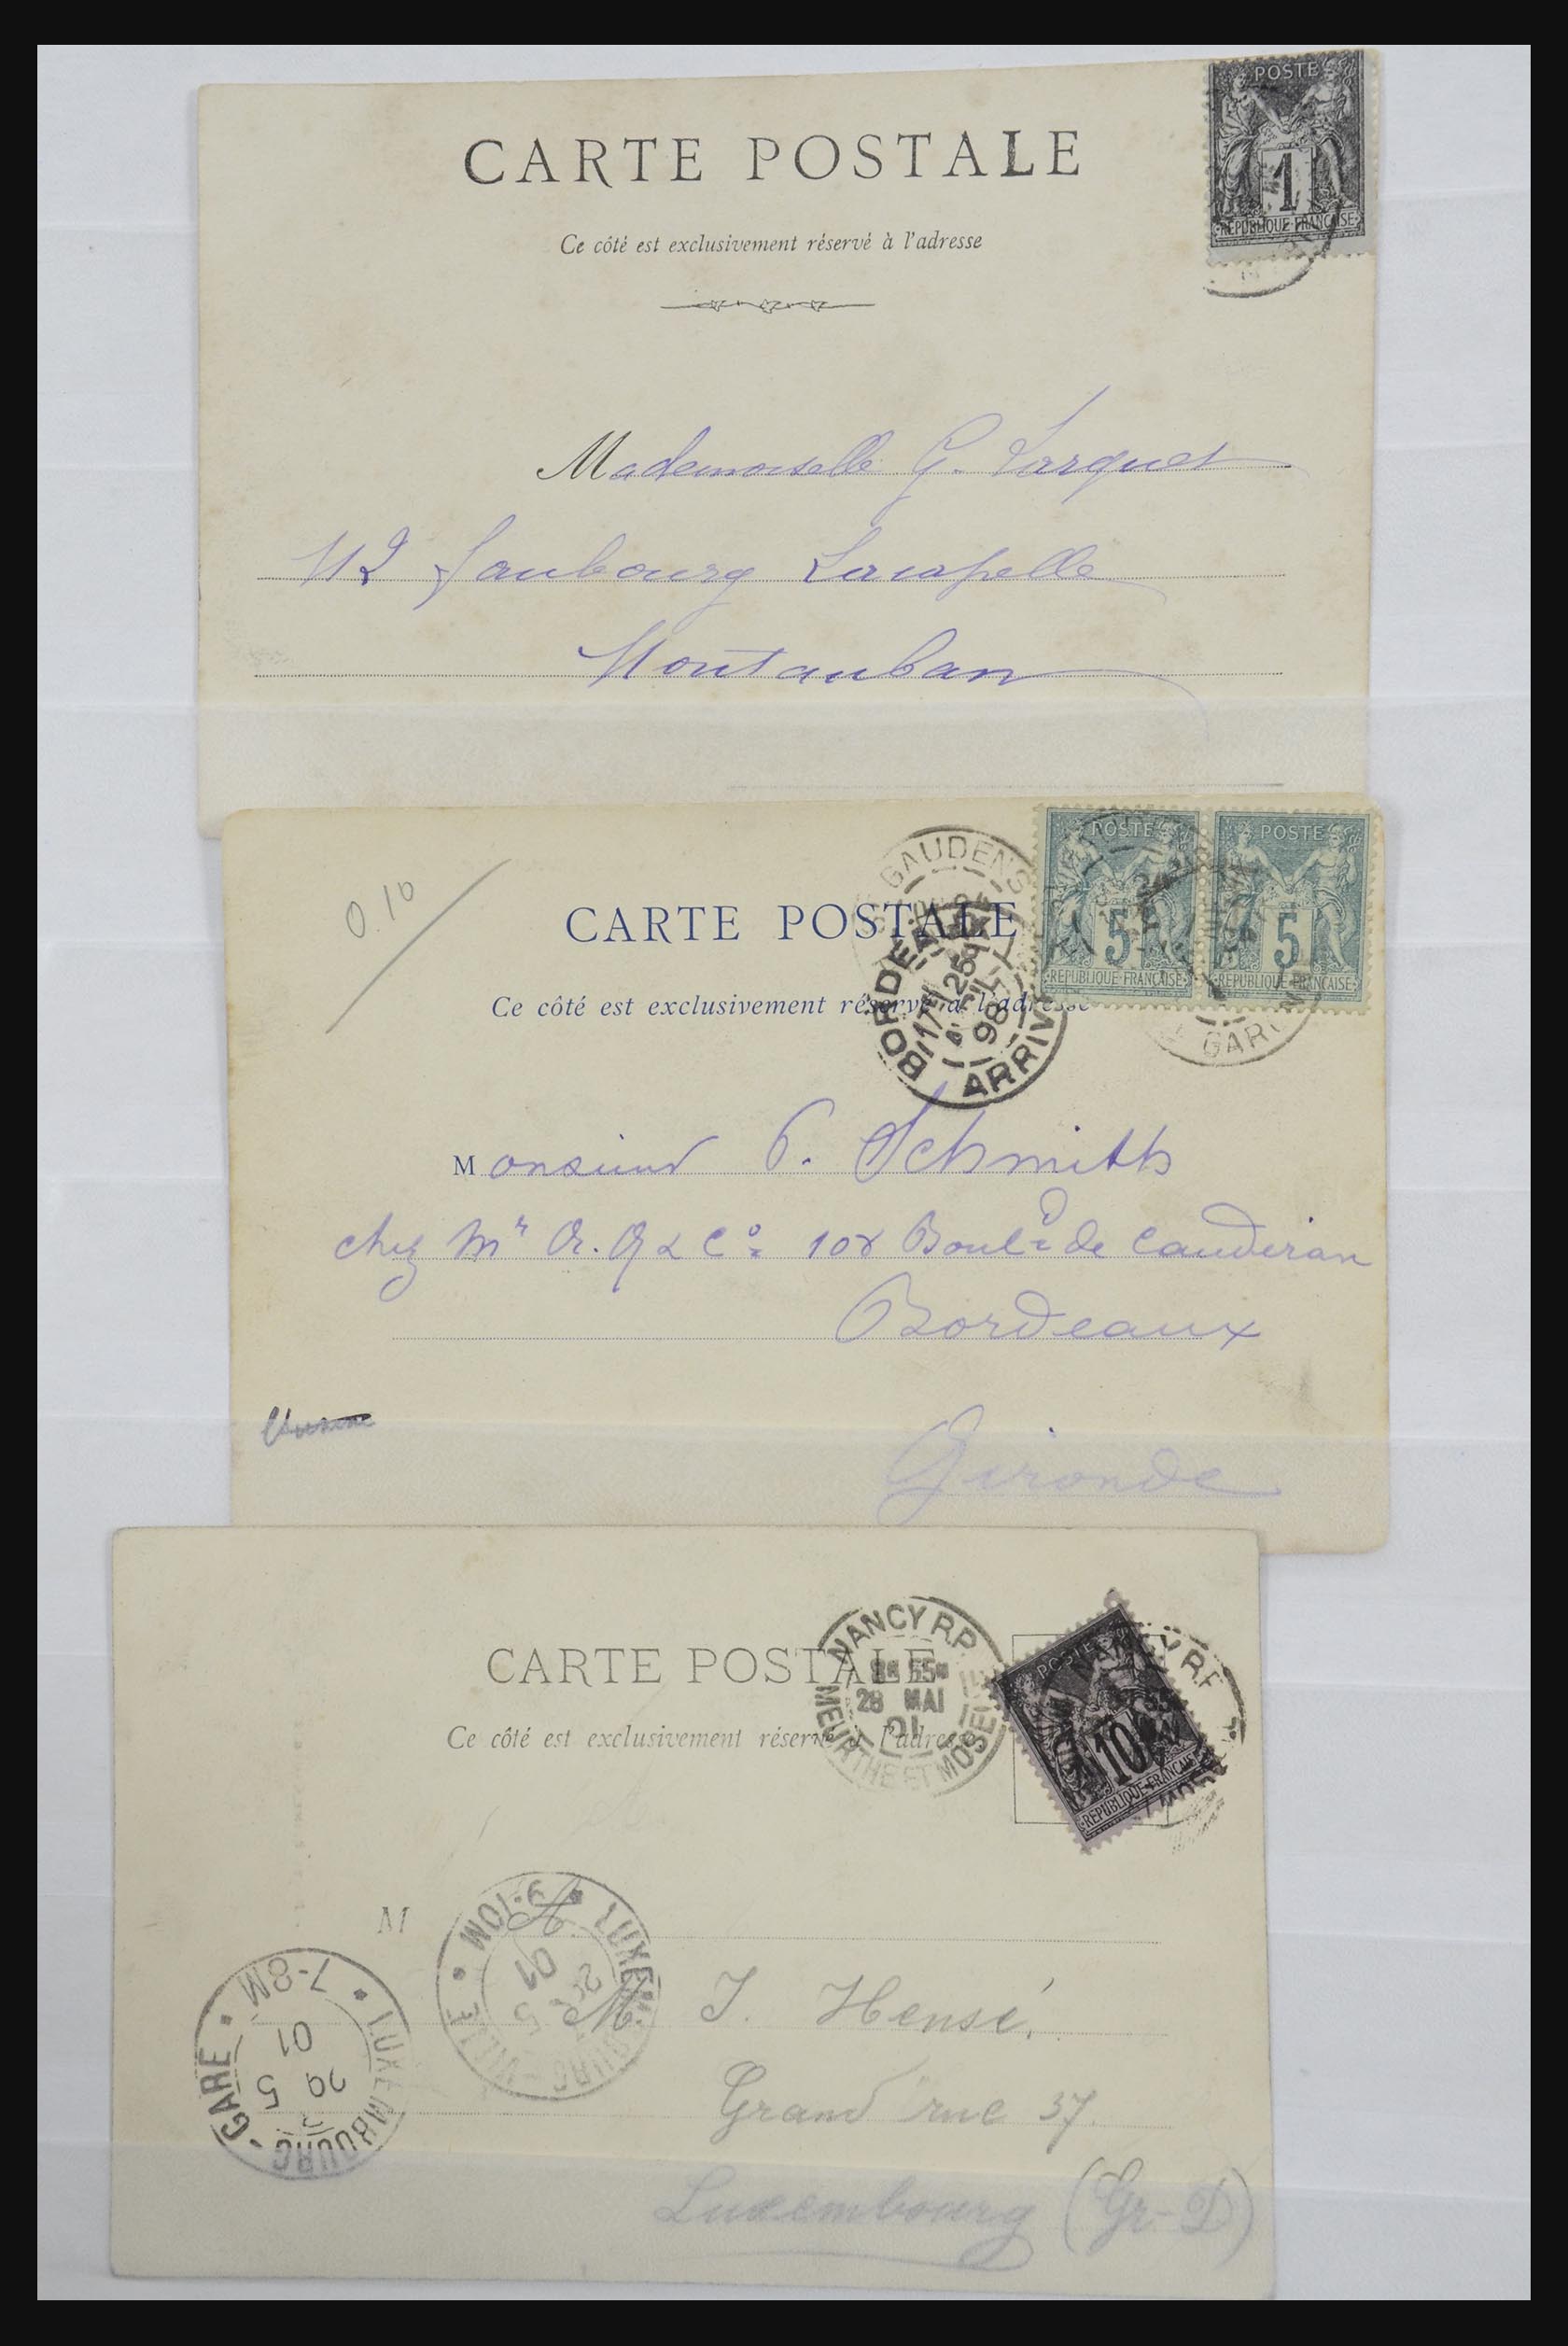 POSTE
1
RÉPUBLIQUE FRANÇAISE
CARTE POSTALE
Ce côté est exclusivement réservé à l'adresse
Mademoiselle G. Larquet
112 faubourg Lacapelle
Montauban
0.10
POSTE POSTE
5 5
RÉPUBLIQUE FRANÇAISE RÉPUBLIQUE FRANÇAISE
GAUDENS
CARTE POSTALE
Ce côté est exclusivement réservé à l'adresse
BORDEAUX
25
AVRIL
98
ARRIVÉE
GAR
Monsieur P. Schmith
chez Mr
& Co 108 Bould de Cauderan
Bordeaux
Gironde
CARTE POSTALE
Ce côté est exclusivement réservé à l'adresse
NANCY R.P.
28 MAI
01
MEURTHE ET MOSELLE
POSTE
10
RÉPUBLIQUE FRANÇAISE
M
A
M. J. Hensé,
Grand'rue 37.
Luxembourg (Gr-D)
LUXEMBOURG-VILLE
9-10M
5
01
LUXEMBOURG-GARE
7-8M
29 5
01